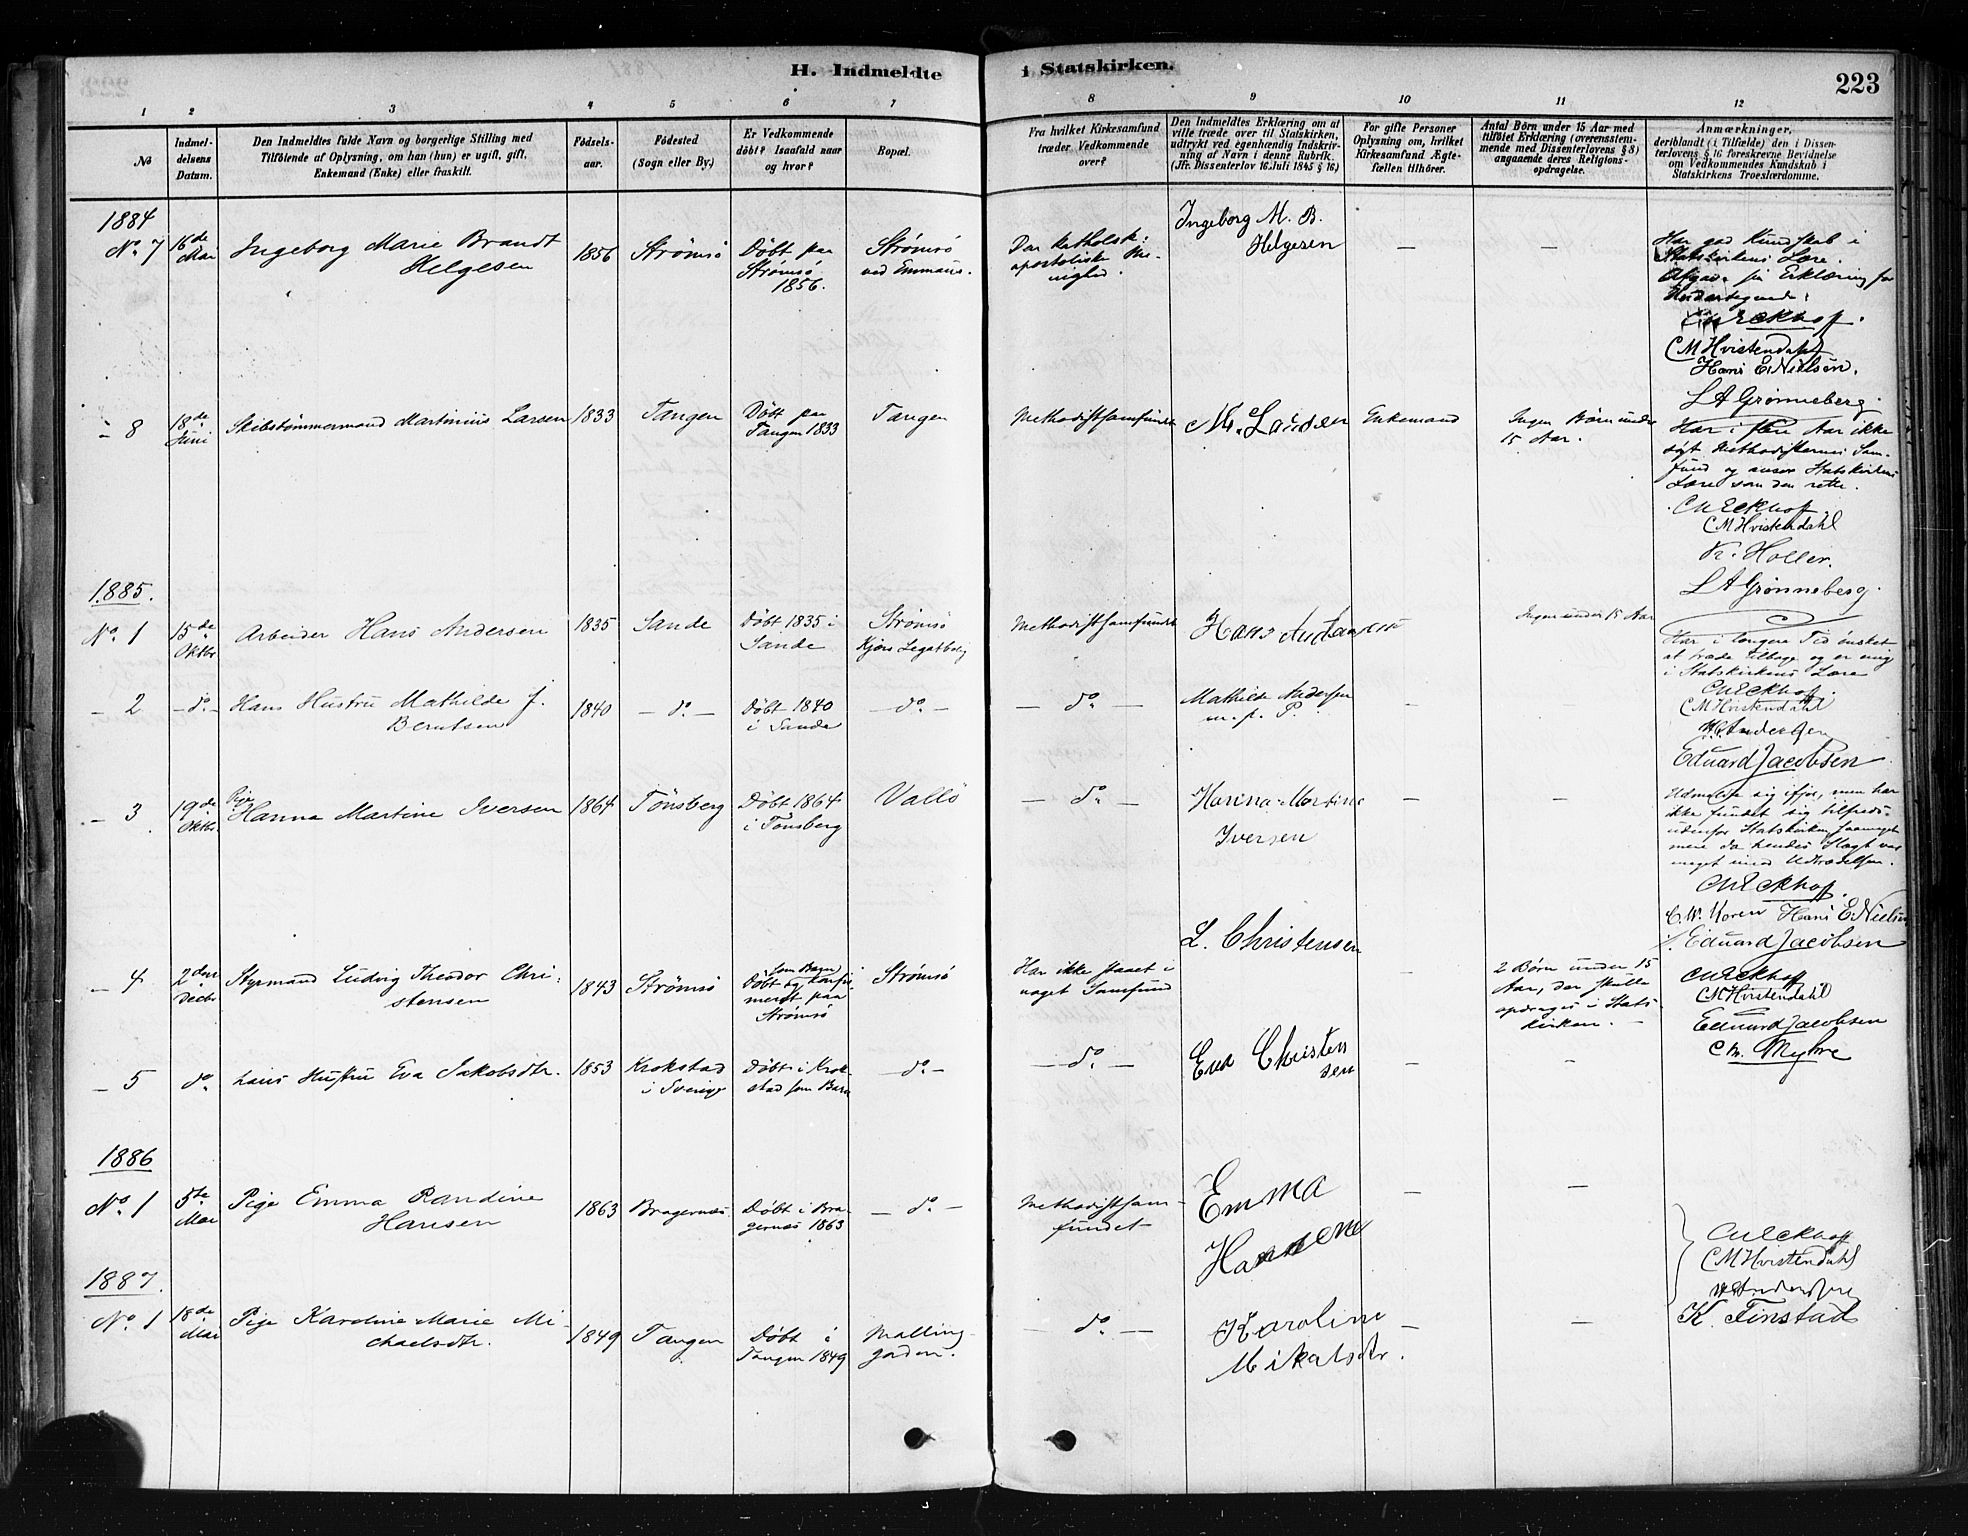 H. Indmeldte i Statskirken.
223
1 2 3 4 5 6 7 8 9 10 11 12
No
Indmel-
delsens
Datum.
Den Indmeldtes fulde Navn og borgerlige Stilling med
Tilføiende af Oplysning, om han (hun) er ugift, gift,
Enkemand (Enke) eller fraskilt.
Fødsels-
aar.
Fødested
(Sogn eller By.)
Er Vedkommende
døbt? Isaafald naar
og hvor?
Bopæl.
Fra hvilket Kirkesamfund
træder Vedkommende
over?
Den Indmeldtes Erklæring om at
ville træde over til Statskirken,
udtrykt ved egenhændig Indskriv-
ning af Navn i denne Rubrik.
(Jfr. Dissenterlov 16 Juli 1845 § 16)
For gifte Personer
Oplysning om, hvilket
Kirkesamfund Ægte-
fællen tilhører.
Antal Børn under 15 Aar med
tilføiet Erklæring (overensstem-
mende med Dissenterlovens § 8)
angaaende deres Religions-
opdragelse.
Anmærkninger,
deriblandt (i Tilfælde) den i Dissen-
terlovens § 16 foreskrevne Bevidnelse
om Vedkommendes Kundskab i
Statskirkens Troeslærdomme.
1884
No. 7
16de
Mai
Ingeborg Marie Brandt
Helgesen
1856
Strømsø
Døbt paa
Strømsø
1856.
Strømsø
ved Emmaus.
Den katholsk
apostoliske Me-
nighed.
Ingeborg M. B.
Helgesen
—
—
Har god Kundskab i
Statskirkens Lære.
Afgav sin Erklæring for
CM Eckhof.
CM Hvistendahl
Hans E. Nielsen.
LA Grønneberg.
- 8
18de
Juni
Skibstømmermand Martinius Larsen
1833
Tangen
Døbt paa
Tangen 1833
Tangen
Methodistsamfundet
M. Larsen
Enkemand
Ingen Børn under
15 Aar.
Har i flere Aar ikke
søgt Methodisternes Sam-
fund og anser Statskirkens
Lære som den rette.
CM Eckhof.
CM Hvistendahl
Kr. Holler.
LA Grønneberg.
1885.
No. 1
15de
Oktbr
Arbeider Hans Andersen
1835
Sande
Døbt 1835 i
Sande
Strømsø
Kjørs Legatbolig
Methodistsamfundet
Hans Andersen
Ingen under 15 Aar
Har i længere Tid ønsket
at træde tilbage og er enig
i Statskirkens Lære
CM Eckhof.
CM Hvistendahl
Andersen
Eduard Jacobsen
- 2
- do -
Hans Hustru Mathilde J.
Berntsen
1840
- do -
Døbt 1840
i Sande
- do -
- do -
Mathilde Andersen
m. p. P.
—
—
- 3
19de
Oktbr.
Pige
Hanna Martine Iversen
1864
Tønsberg
Døbt 1864
i Tønsberg
Vallø
- do -
Hanna Martine
Iversen
—
—
Udmeldte sig ifjor, men har
ikke fundet sig tilfreds
udenfor Statskirken, saameget
mere da hendes Slægt var
meget imod Udtrædelsen.
CM Eckhof.
C. W. Koren Hans E. Nielsen
Eduard Jacobsen
- 4
2den
Decbr
Styrmand Ludvig Theodor Chri-
stensen
1843
Strømsø
(som Barn)
Døbt og konfir-
meret paa
Strømsø
Strømsø
Har ikke staaet i
noget Samfund
L. Christensen
—
2 Børn under 15
Aar, der skulle
opdrages i Stats-
kirken. -
CM Eckhoff
CM Hvistendahl
Eduard Jacobsen
C. M. Myhre
- 5
do
hans Hustru Eva Jakobsdtr.
1853
Krokstad
i Sverige
Døbt i Krok-
stad som Barn
- do -
- do -
Eva Christen
sen
—
-
1886
No. 1
5te
Mai
Pige Emma Randine
Hansen
1863
Bragernæs
Døbt i Bra-
gernæs 1863
- do -
Methodistsam-
fundet
Emma
Hansen
—
—
CM Eckhoff
CM Hvistendahl
K. Finstad
1887.
No. 1
18de
Mai
Pige Karoline Marie Mi-
chaelsdtr.
1849
Tangen
Døbt i
Tangen 1849
Malling-
gården.
- do -
Karoline
Mikalsdtr.
—
—